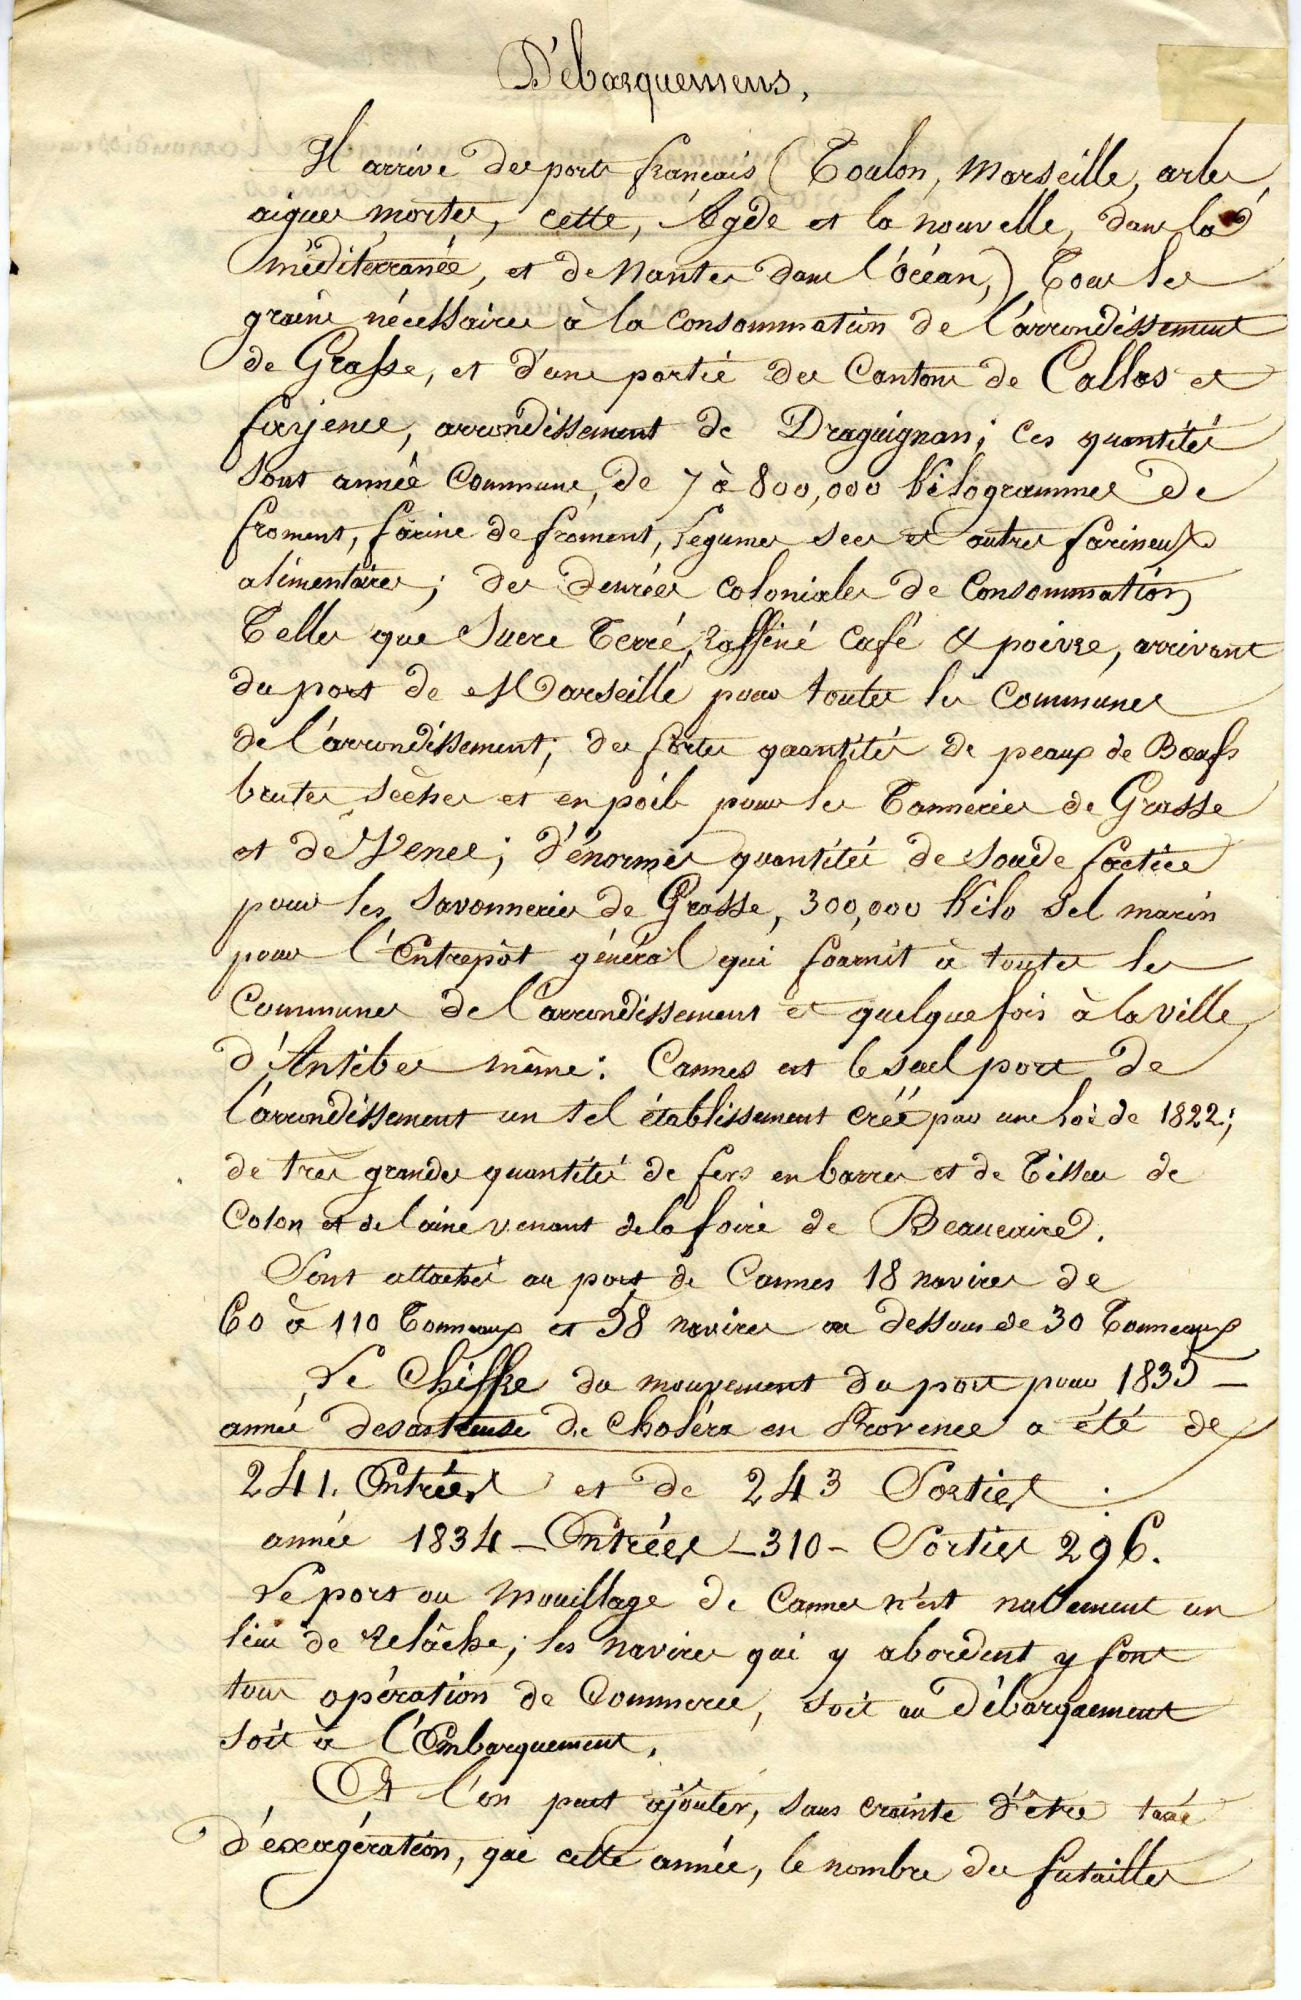 Débarquemens,
Il arrive des ports français (Toulon, Marseille, arles,
aigues mortes, cette, Agde et la nouvelle, dans la
méditerranée, et de Nantes dans l'Océan,) Tous les
grains nécessaires à la consommation de l'arrondissement
de Grasse, et d'une partie des Cantons de Callas et
fayence, arrondissement de Draguignan; ces quantités
sont année Commune, de 7 à 800,000 Kilogrammes de
froment, farine de froment, légumes secs et autres farineux
alimentaires; des denrées coloniales de Consommation
Telles que Sucre Terré, raffiné café & poivre, arrivant
du port de Marseille pour toutes les Communes
de l'arrondissement; des fortes quantités de peaux de Bœufs
brutes sèches et en poil pour les Tanneries de Grasse
et de Vence; d'énormes quantités de soude factice
pour les savonneries de Grasse, 300,000 Kilo sel marin
pour l'Entrepôt général qui fournit à toutes les
Communes de l'arrondissement et quelque fois à la ville
d'Antibes même: Cannes est le seul port de
l'arrondissement un tel établissement créé par une loi de 1822;
de très grandes quantités de fers en barres et de Tissus de
Coton et de laine venant de la foire de Beaucaire.
Sont attachés au port de Cannes 18 navires de
60 à 110 Tonneaux et 58 navires au dessous de 30 Tonneaux
Le Chiffre du mouvement du port pour 1835 —
année desastreuse de Choléra en Provence a été de
241. Entrées et de 243 Sorties.
année 1834 — Entrées — 310 — Sorties 296.
Le port ou Mouillage de Cannes n'est nullement un
lieu de relâche; les navires qui y abordent y font
tous opération de Commerce, soit au Débarquement
soit à l'Embarquement.
Et l'on peut ajouter, sans crainte d'être taxé
d'éxagération, que cette année, le nombre des futailles